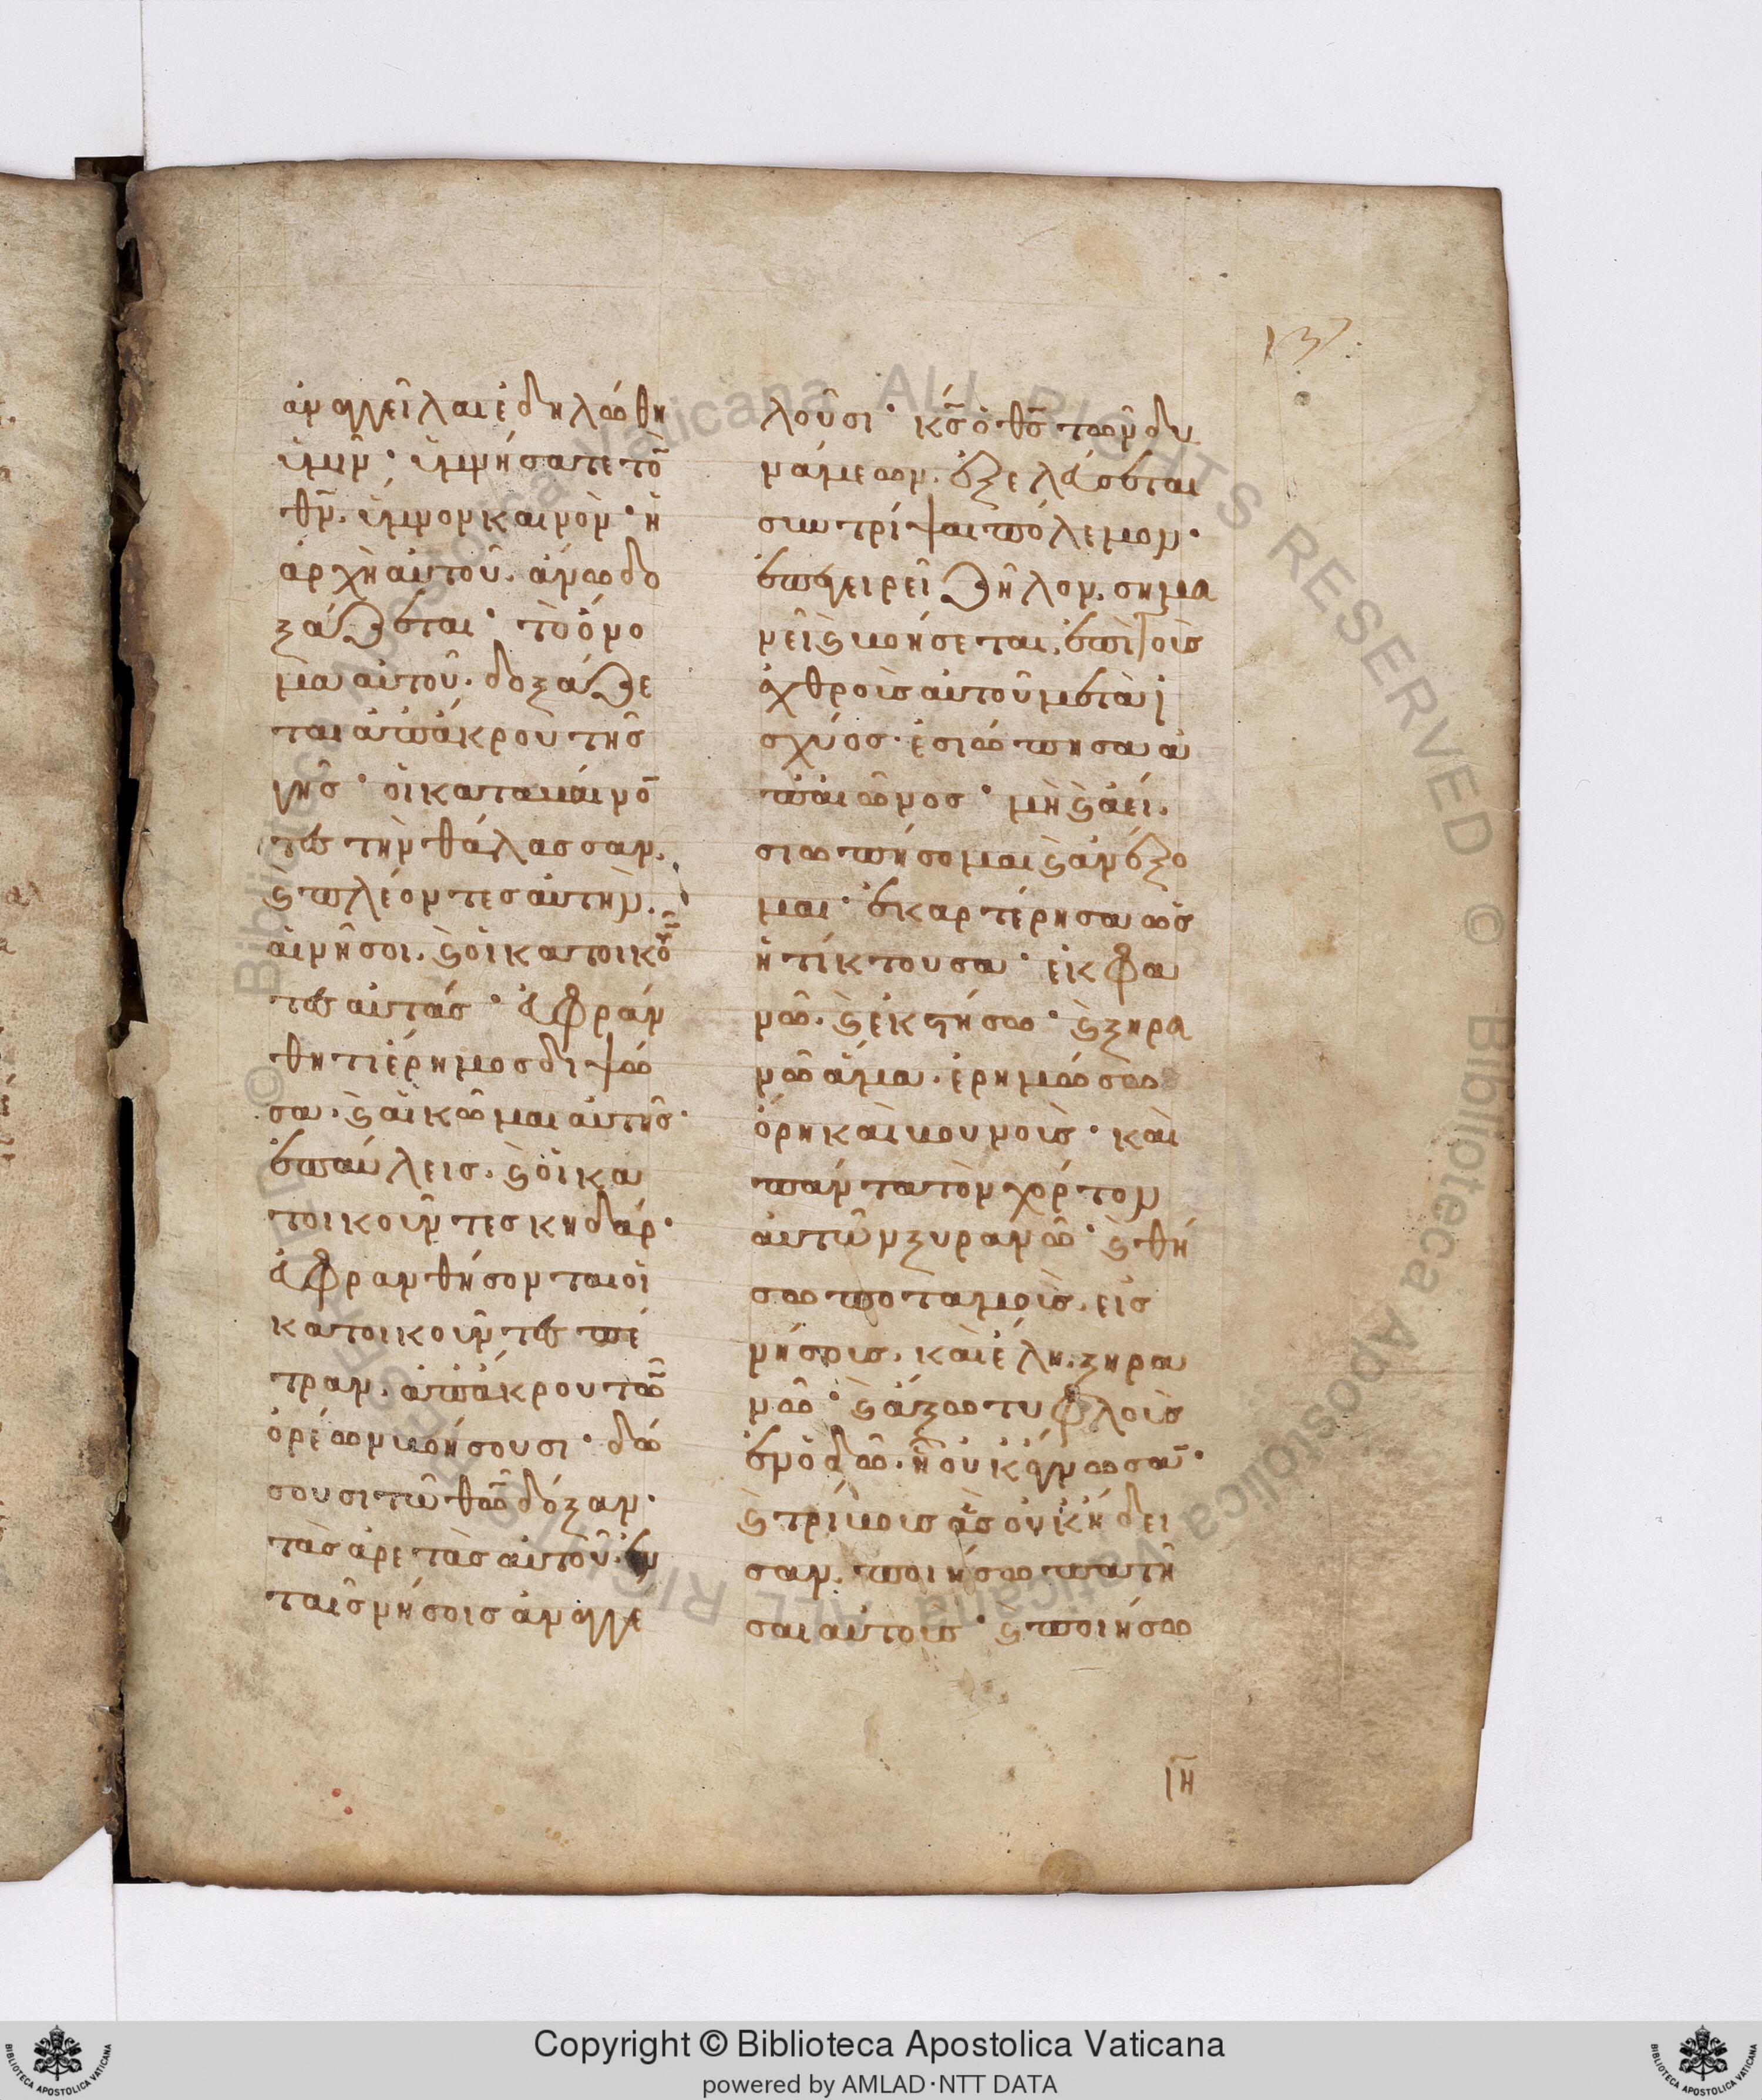 137
ἀναγγεῖλαι ἐδηλώθη
ὑμῖν · ὑμνήσατε τῶ
θ̅ν̅. ὕμνον καινὸν · ἡ
ἀρχὴ αὐτοῦ. ἄνω δο
ξάζεται · τὸ ὄνο
μα αὐτοῦ. δοξάζε
ται ἀπ' ἄκρου τῆς
γῆς · οἱ καταβαίνο̅
τες τὴν θάλασσαν.
ϗ πλέοντες αὐτὴν.
αἱ νῆσοι. ϗ οἱ κατοικοῦ̅
τες αὐτάς · εὐφράν
θητι ἔρημος διψῶ
σα. ϗ αἱ κῶμαι αὐτῆς ·
ἐπαύλεις. ϗ οἱ κα
τοικοῦντες κηδάρ ·
εὐφρανθήσονται οἱ
κατοικοῦντες πέ
τραν. ἀπ' ἄκρου τῶ̅
ὀρέων βοήσουσι · δώ
σουσι τῶ θ̅ω̅ δόξαν ·
τὰς ἀρετὰς αὐτοῦ. ἐν
ταῖς νήσοις ἀναγγε
λοῦσι · κ̅ς̅ ὁ θ̅ς̅ τῶν δυ
νάμεων. ἐξελεύσεται
συντρίψαι πόλεμον ·
ἐπεγειρεῖ ζῆλον. ϗ βοήσεται. ἐπὶ τοὺς
ἐχθροὺς αὐτοῦ μετὰ ἰ
σχύος · ἐσιώπησα ἀ
π' αἰῶνος · μὴ ϗ ἀεί.
σιωπήσομαι ϗ ἀνέξο
μαι · ἐκαρτέρησα ὡς
ἡ τίκτουσα · ἐκφα
νῶ. ϗ ἐκστήσω · ϗ ξηρα
νῶ ἅμα. ἐρημώσω
ὄρη καὶ βουνοὺς · καὶ
πάντα τὸν χόρτον
αὐτῶν ξυρανῶ · ϗ θή
σω ποταμοὺς. εἰς
νήσους. καὶ ἕλη. ξηρα
νῶ · ϗ ἄξω τυφλοὺς
ἐν ὁδῶ. ἣν οὐκ ἔγνωσα̅ ·
ϗ τρίβους ἃς οὐκ ἤδει
σαν. ποιήσω πατῆ
σαι αὐτοὺς · ϗ ποιήσω
ιη
Copyright © Biblioteca Apostolica Vaticana
powered by AMLAD·NTT DATA
© Biblioteca Apostolica Vaticana ALL RIGHTS RESERVED